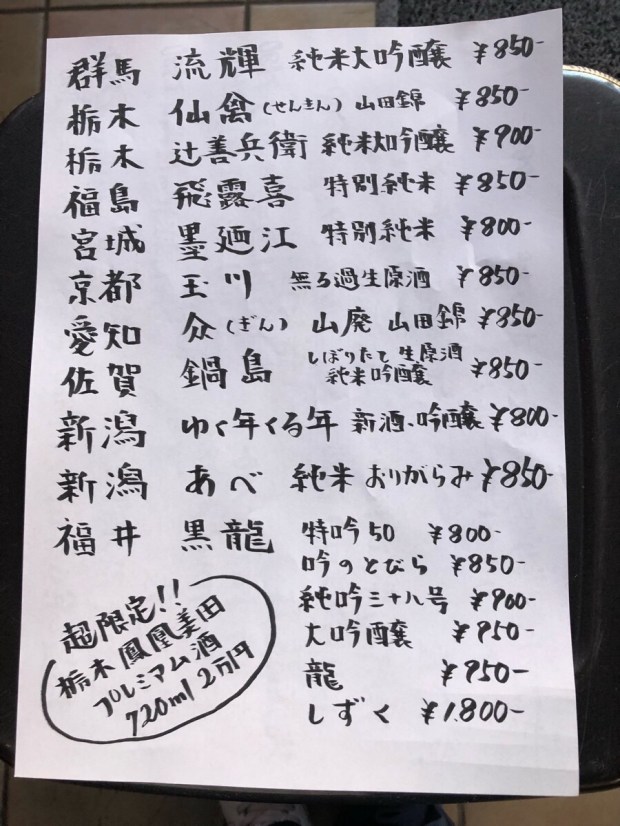 群馬 流輝 純米大吟醸 ¥850-
栃木 仙禽(せんきん) 山田錦 ¥850-
栃木 辻善兵衛 純米大吟醸 ¥900-
福島 飛露喜 特別純米 ¥850-
宮城 墨廼江 特別純米 ¥800-
京都 玉川 無ろ過生原酒 ¥850-
愛知 众(ぎん) 山廃 山田錦 ¥850-
佐賀 鍋島 しぼりたて 生原酒
純米吟醸 ¥850-
新潟 ゆく年くる年 新酒、吟醸 ¥800-
新潟 あべ 純米 おりがらみ ¥850-
福井 黒龍 特吟50 ¥800-
吟のとびら ¥850-
純吟三十八号 ¥900-
大吟醸 ¥950-
龍 ¥950-
しずく ¥1.800-
超限定!!
栃木 鳳凰美田
プレミアム酒
720ml 2万円